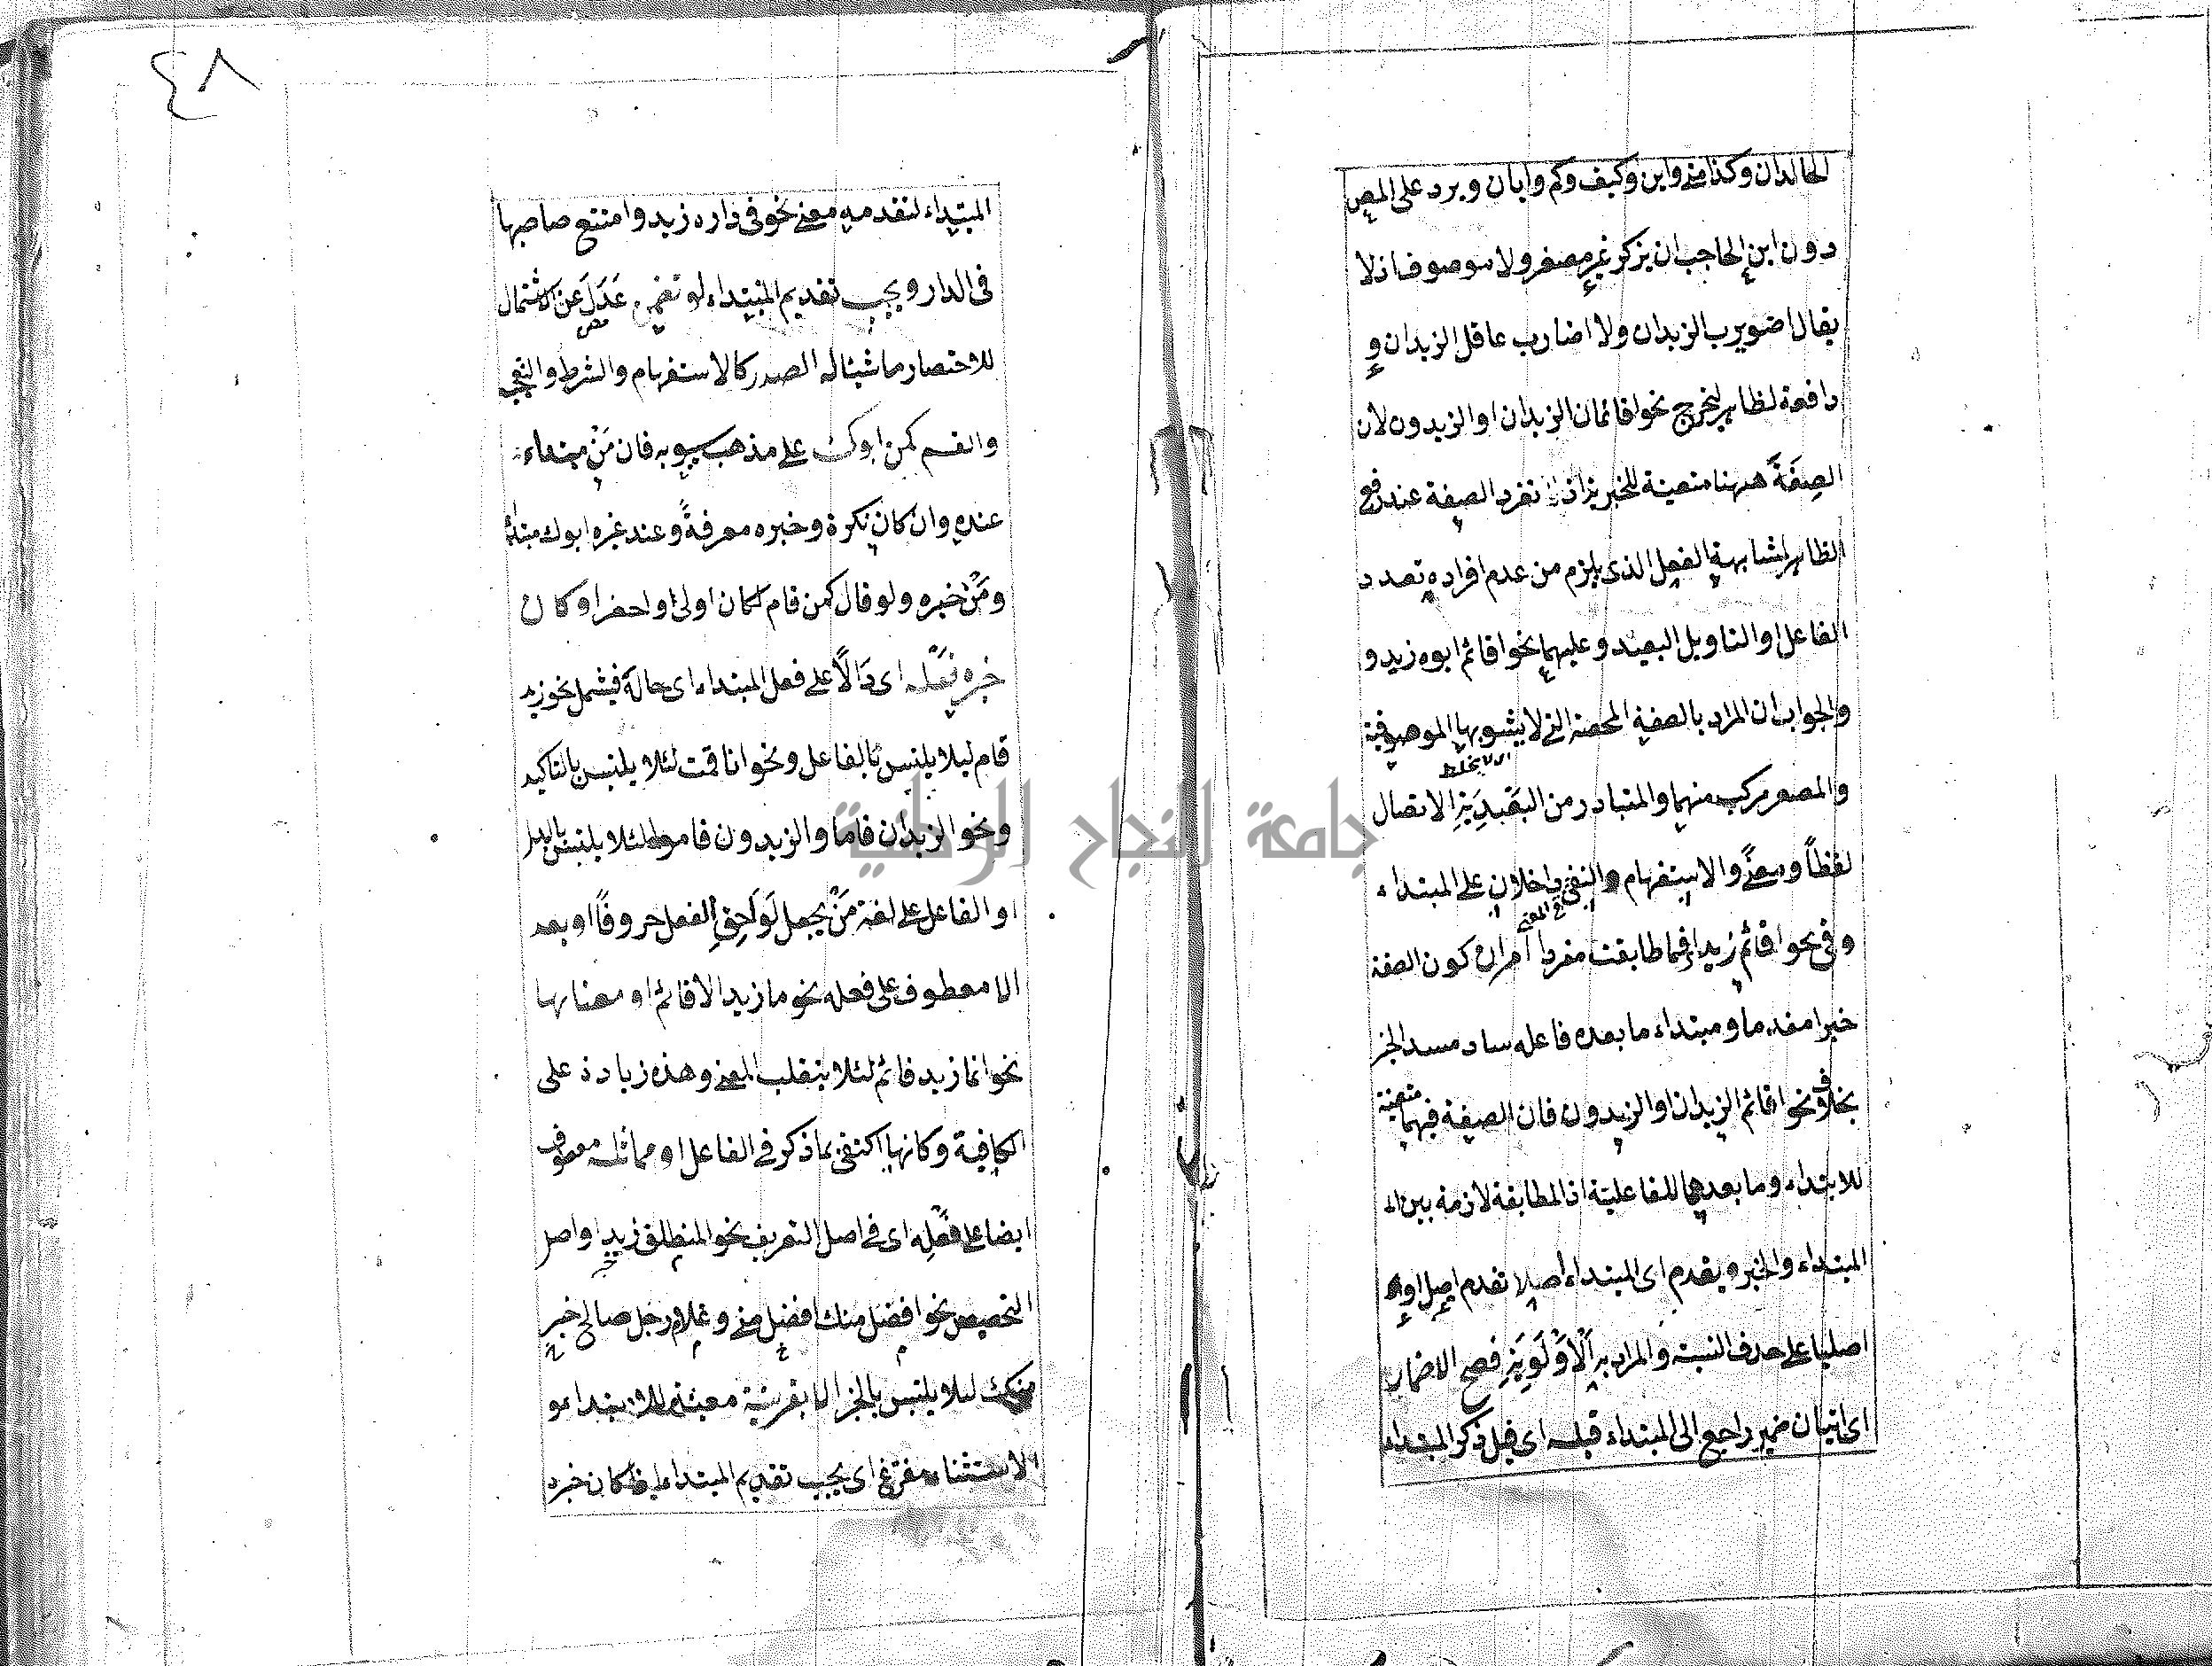 الخالدان وكذا متى واين وكيف وكم وايان ويرد على المص
دون ابن الحاجب ان يذكر غير مصغر ولا موصوف اذ لا
يقال اضويرب الزيدان ولا اضارب عاقل الزيدان و
رافعة لظاهر ليخرج نحو اقائمان الزيدان او الزيدون لان
الصِفَةَ ههنا متعينة للخبرية اذ تفرد الصفة عند رفع
الظاهر لمشابهة الفعل الذى يلزم من عدم افراده تعدد
الفاعل او التاويل البعيد وعليهما نحو اقائم ابوه زيد و
والجواب ان المراد بالصفة المحضة التى لا يشوبها الموصوفية
اى لا يخلط
والمصغر مركب منهما والمتبادر من البَعْدِيَّةِ الاتصال
لفظاً ومعنىً والاستفهام والنفى داخلان على المبتداء
فى المعنى
وفى نحو اقائم زيد فما طابقت مفردا امران كون الصفة
خبرا مقدما ومبتداء ما بعده فاعله ساد مسد الخبر
بخلاف نحو اقائم الزيدان او الزيدون فان الصفة فيهما متعينة
للابتداء وما بعدهما للفاعلية اذ المطابقة لازمة بين ا
المبتداء والخبر ويقدم اى المبتداء اصلا تقدم اصل او
اصليا على حذف النسبة والمراد به الْاَوْلَوِيَّةِ فصح الاضمار
اى اتيان ضمير راجع الى المبتداء قبله اى قبل ذكر المبتداء
٤٨
المبتداء لتقدمه معنى نحو فى داره زيد وامتنع صاحبها
فى الدار ويجب تقديم المبتداء لو تضمن عَدَلَ عن اشتمال
للاختصار ما شبثاله الصدر كالاستفهام والشرط والتعجب
والقسم كمن ابوك على مذهب سيبويه فان مَنْ مبتداء
عنده وان كان نكرة وخبره معرفةً وعند غيره ابوك مبتداء
ومَنْ خبره ولو قال كمن قام لكان اولى واخصر او كان
خبره فِعْلَه اى دَالًّا على فعل المبتداء اى حالة فيشمل نحو زيد
قام ليلا يلتبس بالفاعل ونحو انا قمت لئلا يلتبس بالتاكيد
ونحو الزيدان قاما والزيدون قاموا لئلا يلتبس بالبدل
او الفاعل على لغة مَنْ يجعل لَوَاحِقِ الفعل حروفاً او بعد
الا معطوف على فعله نحو ما زيد الا قائم او معناها
نحو انما زيد قائم لئلا ينقلب المعنى وهذه زيادة على
الكافية وكانها اكتفى بما ذكر فى الفاعل او مماثله معطوف
ايضا على فِعْلِه اى فى اصل التعريف نحو المنطلق زيد او اصل
خبر
التخصيص نحو افضل منك افضل منى وغلام رجل صالح خير
منك ليلا يلتبس بالخبر الا بقرينة معينة للابتداء و
الاستثناء مفرغ اى يجب تقديم المبتداء كان خبره
جامعة النجاح الوطنية